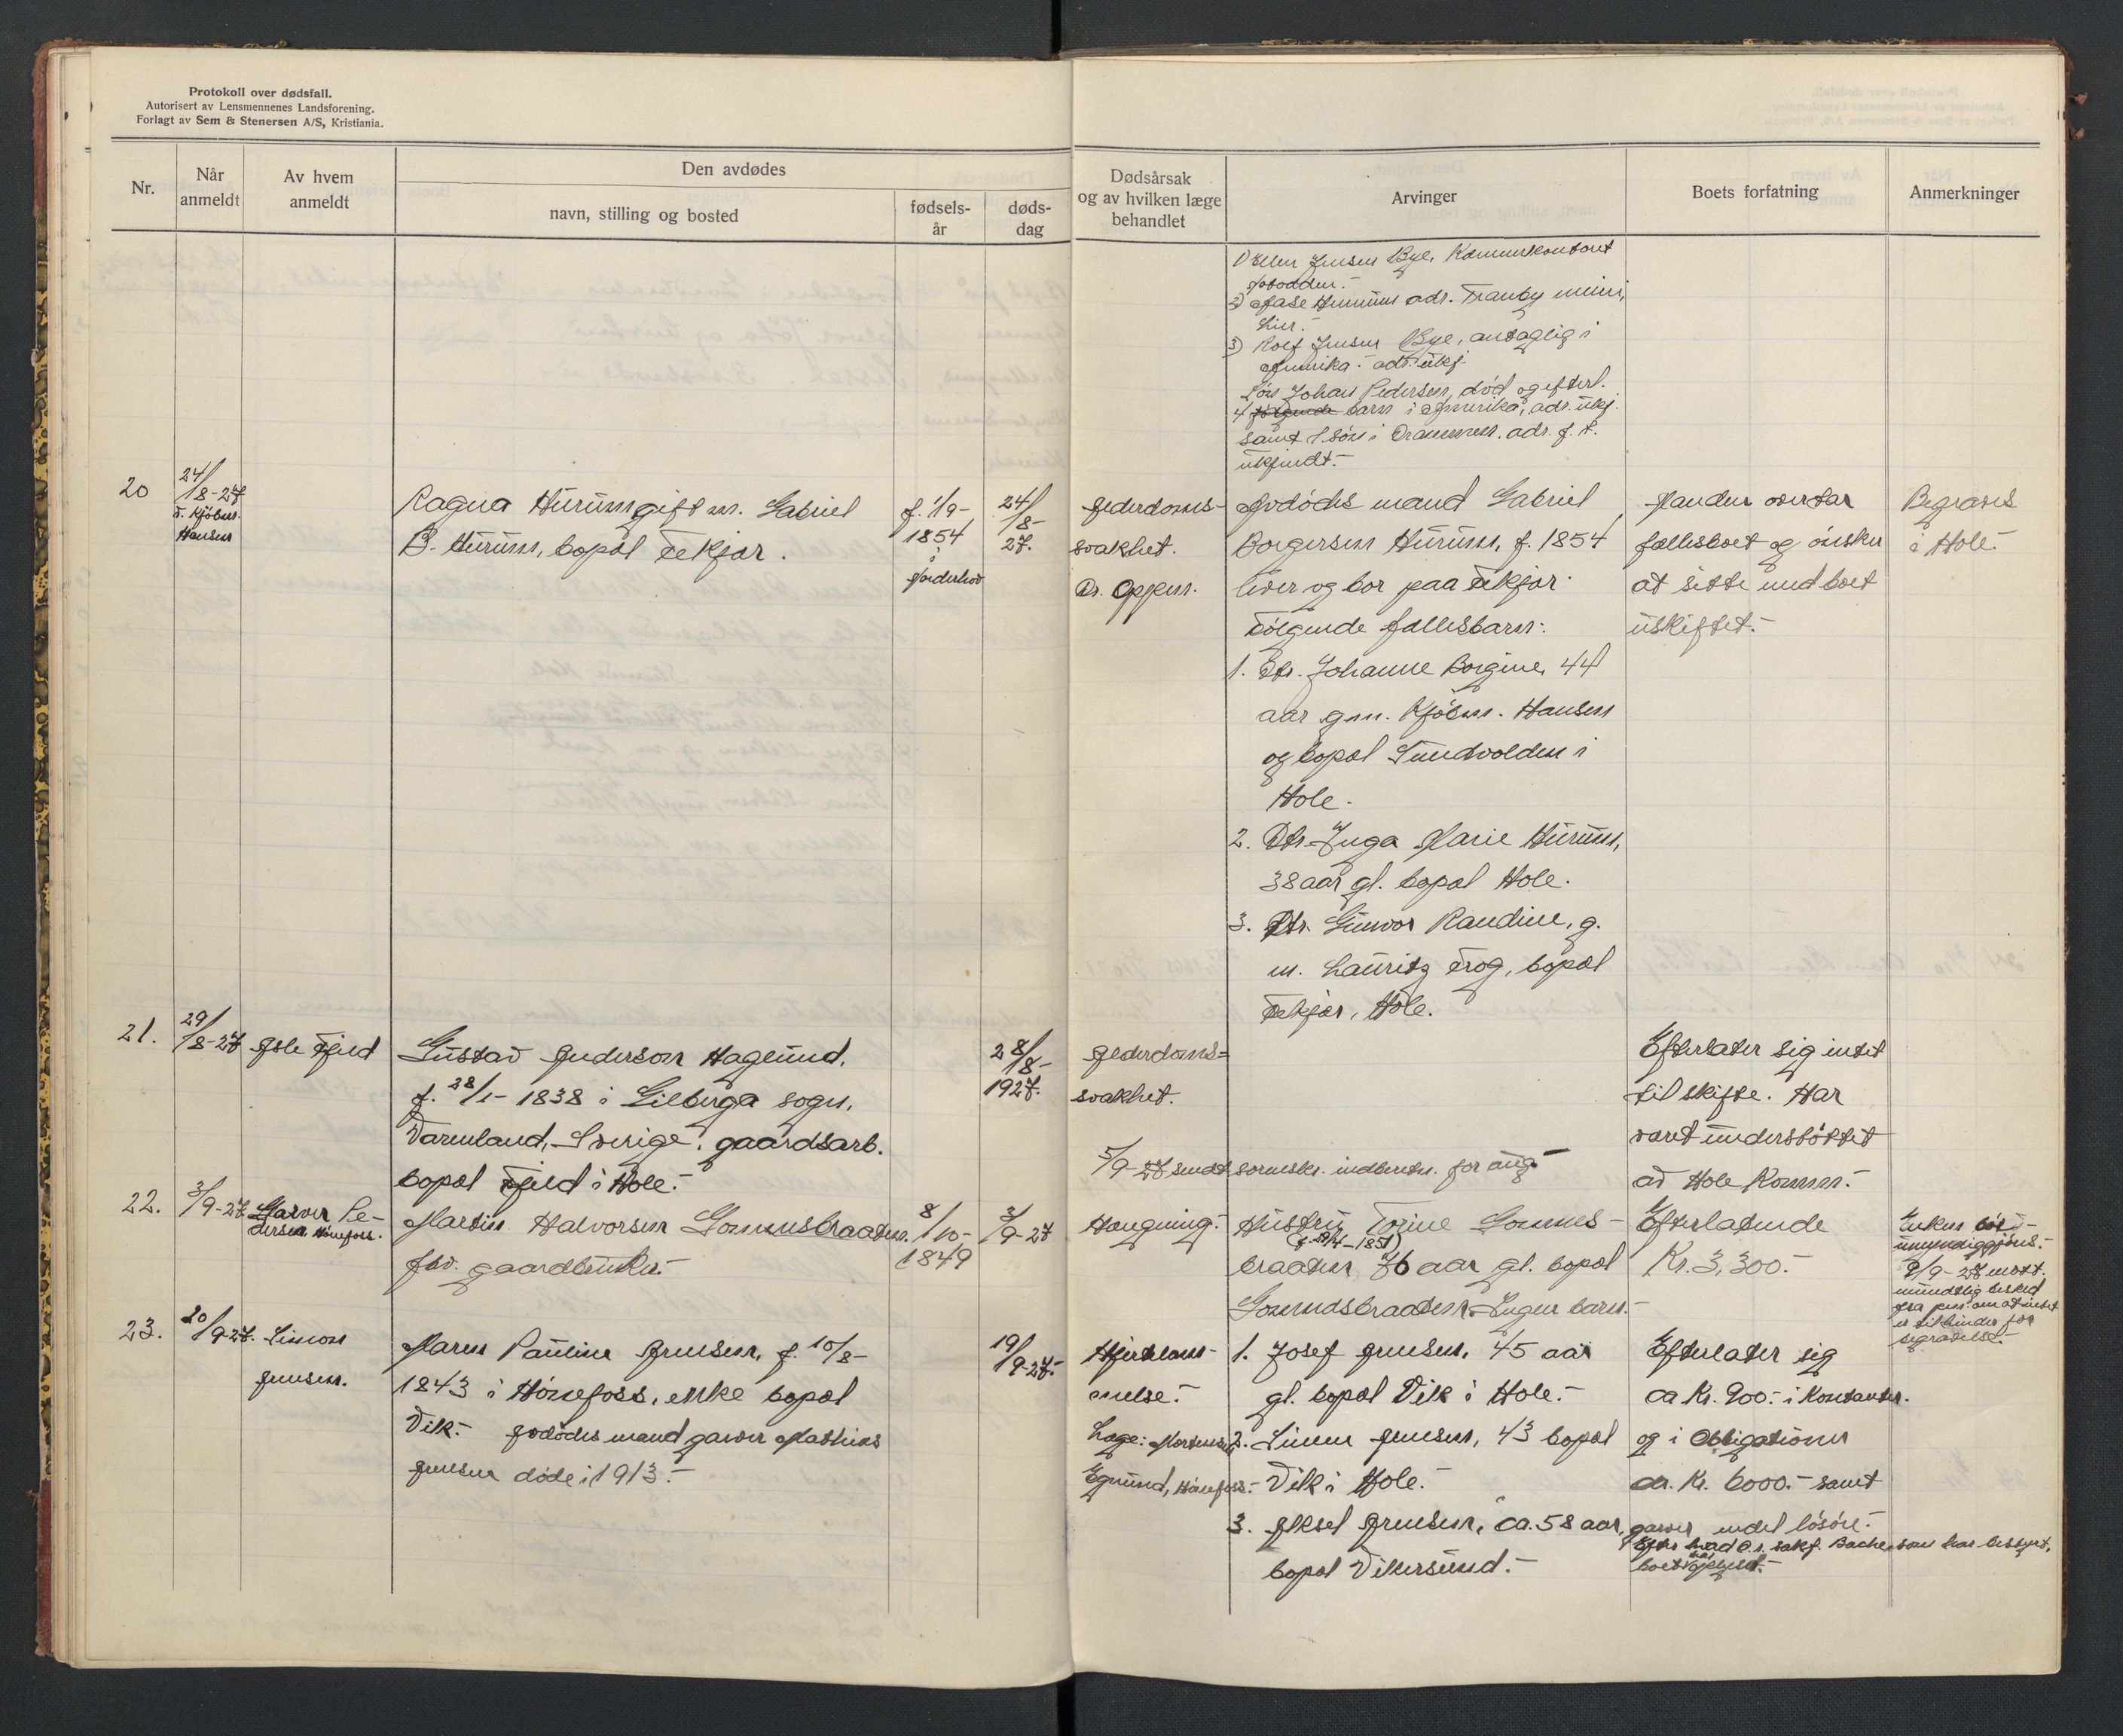 Protokoll over dødsfall.
Autorisert av Lensmennenes Landsforening.
Forlagt av Sem & Stenersen A/S, Kristiania.
Nr.
Når anmeldt
Av hvem anmeldt
Den avdødes
navn, stilling og bosted
fødsels-år
døds-dag
Dødsårsak
og av hvilken læge
behandlet
Arvinger
Boets forfatning
Anmerkninger
1) Ellen Jensen Bye, Kæmnerkontoret
2) Aase Hurum adr. Tranby meieri,
Lier.-
3) Rolf Jensen Bye, antaglig i
Amerika.- adr. ukj.
Søn Johan Pedersen, død og efterl.
4 følgende barn i Amerika, adr. ukj.
samt 1 søn i Drammen. adr. f. t.
ukjendt.-
20
24/8-27
v. Kjöbm.
Hansen
Ragna Hurum gift m. Gabriel
B. Hurum, bopal Fekjær.
f. 1/9-
1854
i
Norderhov
24/8-
27.
Alderdoms-
svakhet.
Dr. Oppen.
Avdödes mand Gabriel
Borgersen Hurum, f. 1854
lever og bor paa Fekjær.
Fölgende fællesbarn:
1. Dtr. Johanne Borgine, 44
aar g.m. Kjöbm. Hansen
og bopal Sundvolden i
Hole.
2. Dtr. Inga Marie Hurum,
38 aar gl. bopal Hole.
3. Dtr. Gunvor Randine, g.
m. Lauritz Frog, bopal
Fekjær, Hole.
Manden overtar
fællesboet og önsker
at sitte med boet
uskiftet.-
Begraves
i Hole.-
21.
29/8-27
Asle Fjeld
Gustav Anderson Haglund,
f. 28/1- 1838 i Gilberga sogn,
Värmland, Sverige, gaardsarb.
bopal Fjeld i Hole.-
28/8-
1927.
Alderdoms-
svakhet.
Efterlater sig intet
til skifte. Har
været understöttet
av Hole Komm.-
5/9-27 sendt sorenskr. indberetn. for aug.-
22.
3/9-27
Garver Pe-
dersen Hönefoss.
Martin Halvorsen Gommesbraaten.
fhv. gaardbruker.-
8/10-
1849
3/9-27
Hængning.-
Hustru Torine Gommes-
(f. 29/4-1851)
braaten 76 aar gl. bopal
Gommesbraaten.- Ingen barn.-
Efterlatende
Kr. 3,300.-
Enken bör
umyndiggjöres.-
9/9-27 mott.
mundtlig besked
at intet
er til hinder for
begravelse.-
23.
20/9-27.
Simon
Jensen.
Maren Pauline Jensen, f. 10/8-
1843 i Hönefoss, enke bopal
Vik.- Avdödes mand garver Mathias
Jensen döde i 1913.-
19/9-27.-
Hjertelam-
melse.-
Læge: Mortensen
Egnund, Hönefoss.-
1. Josef Jensen, 45 aar
gl. bopal Vik i Hole.-
2. Simon Jensen, 43 bopal
Vik i Hole.-
3. Aksel Jensen, ca. 58 aar, garver
bopal Vikersund.-
Efterlater sig
ca Kr. 900.- i Kontanter.
og i Obligationer
ca. Kr. 6000.- samt
endel lösöre.-
Efter hvad O.r. sakf. Bache som har bestyret,
boet har oplyst.-